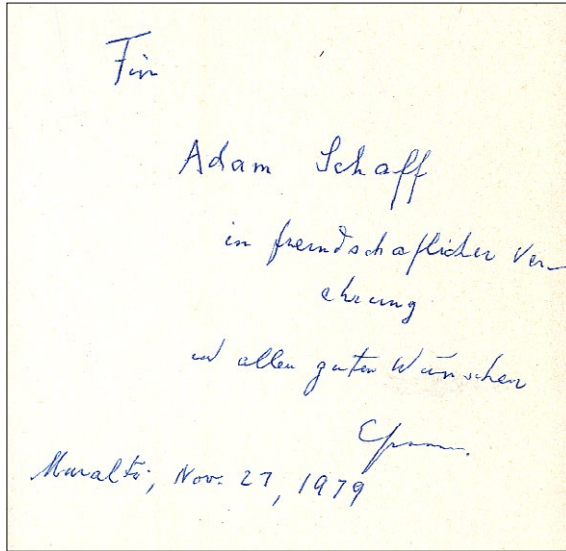 Für
Adam Schaff
in freundschaflicher Ver-
ehrung
und allen guten Wünschen
Muralto, Nov. 27, 1979